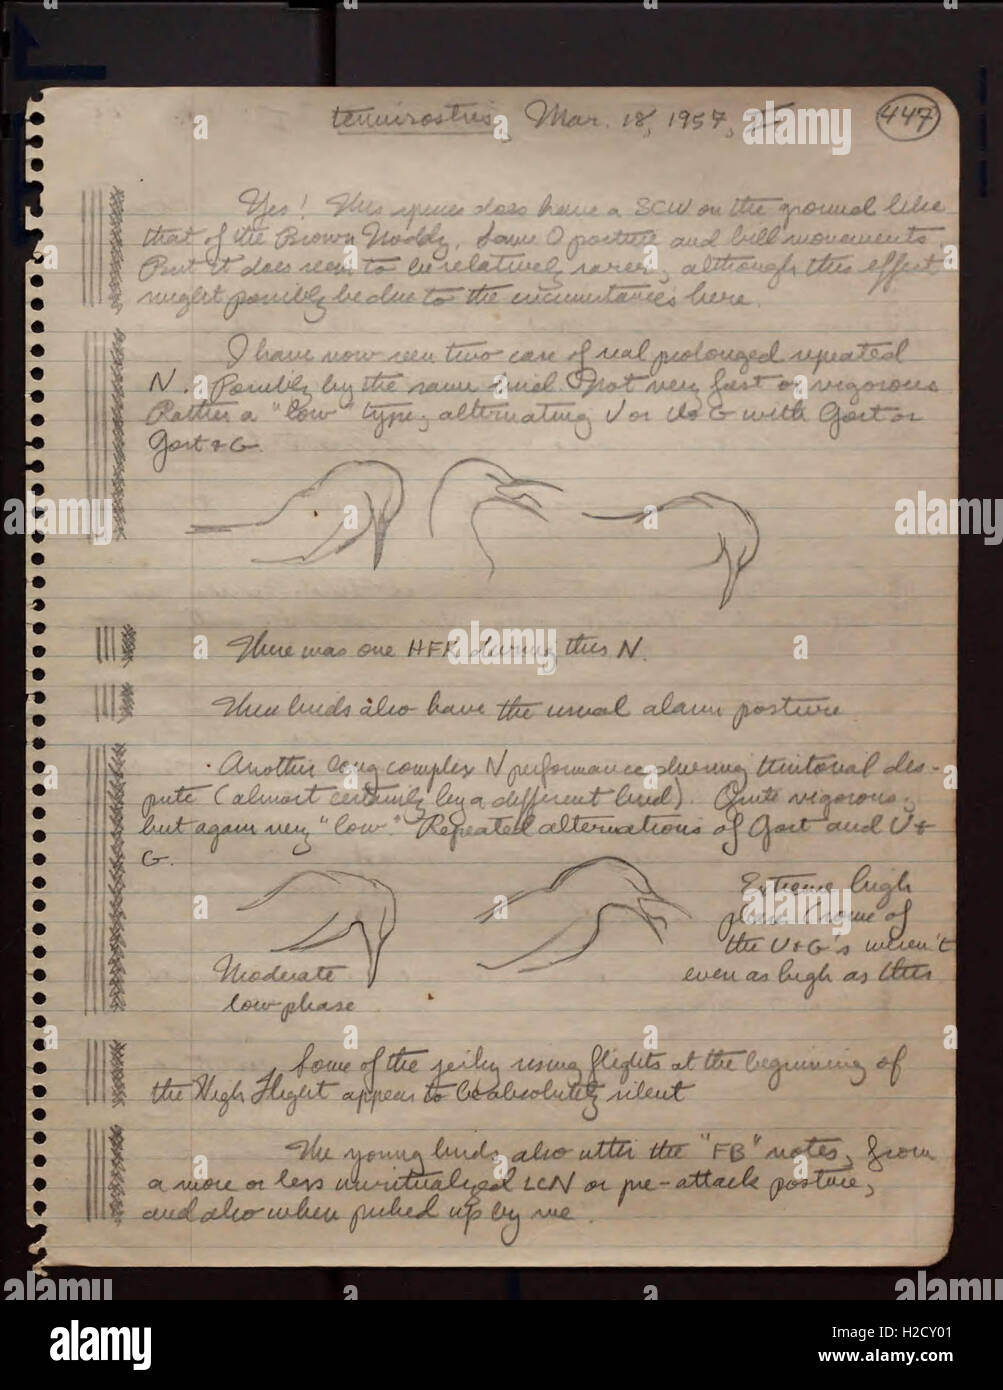 tenuirostris, Mar. 18, 1957, I
447
Yes! This species does have a SCW on the ground like
that of the Brown Noddy. Same O posture and bill movements.
But it does seem to be relatively rarer, although this effect
might possibly be due to the circumstances here.
I have now seen two case of real prolonged repeated
N. Possibly by the same bird. Not very fast or vigorous
Rather a "low" type, alternating V or V & G with Gort or
Gort & G.
There was one HFR during this N.
These birds also have the usual alarm posture
Another long complex N performance during territorial dis-
pute (almost certainly by a different bird). Quite vigorous,
but again very "low". Repeated alternations of Gort and V &
G.
Extreme high
phase (some of
the V & G's weren't
even as high as this
Moderate
low phase
Some of the jerky rising flights at the beginning of
the High Flight appear to be absolutely silent
The young birds also utter the "FB" notes, from
a more or less unritualized LCN or pre-attack posture,
and also when picked up by me.
alamy
a
alamy stock photo
H2CY01
www.alamy.com